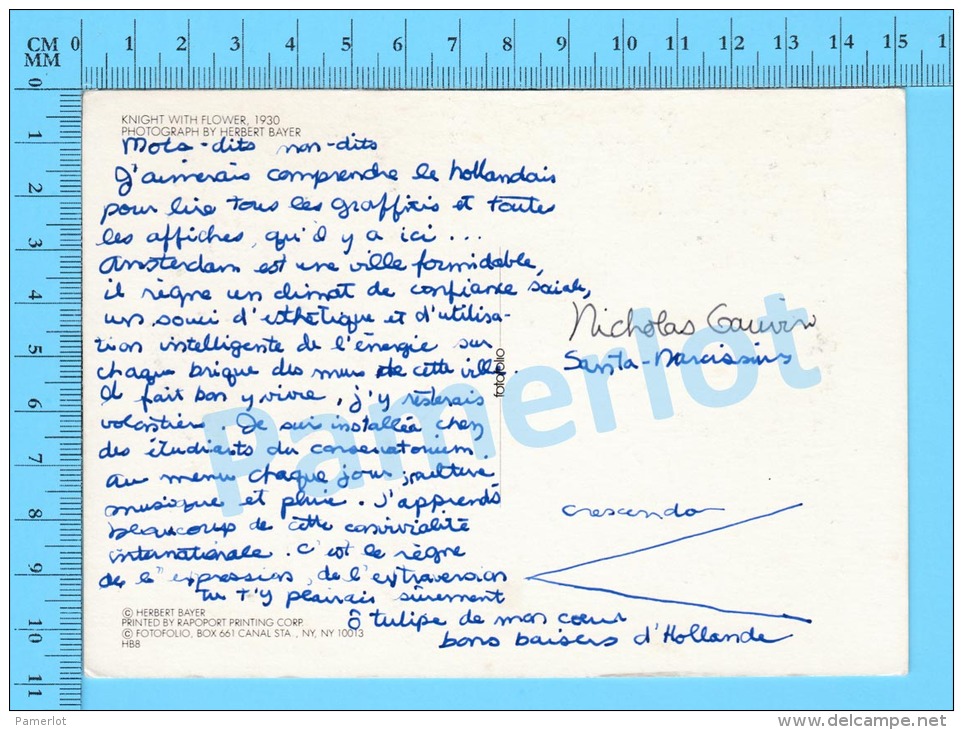 CM 0 1 2 3 4 5 6 7 8 9 10 11 12 13 14 15 1
MM
0 1 2 3 4 5 6 7 8 9 10 11
KNIGHT WITH FLOWER, 1930
PHOTOGRAPH BY HERBERT BAYER
Mots-dits non-dits
J'aimerais comprendre le hollandais
pour lire tous les graffitis et toutes
les affiches, qu'il y a ici ...
Amsterdam est une ville formidable,
il règne un climat de confiance sociale,
un souci d'esthétique et d'utilisa-
tion intelligente de l'énergie sur
chaque brique des murs de cette ville.
Il fait bon y vivre, j'y resterais
volontiers. Je suis installée chez
des étudiants du conservatorium.
au menu chaque jour; culture
musique et pluie. J'apprends
beaucoup de cette convivialité
internationale. C'est le règne
de l'expression, de l'extraversion
tu t'y plairais sûrement
ô tulipe de mon cœur
bons baisers d'Hollande
fotofolio
Nicholas Gauvin
Santa-Narcissius
crescendo
© HERBERT BAYER
PRINTED BY RAPOPORT PRINTING CORP.
© FOTOFOLIO, BOX 661 CANAL STA., NY, NY 10013
HB8
Pamerlot
Pamerlot
www.delcampe.net